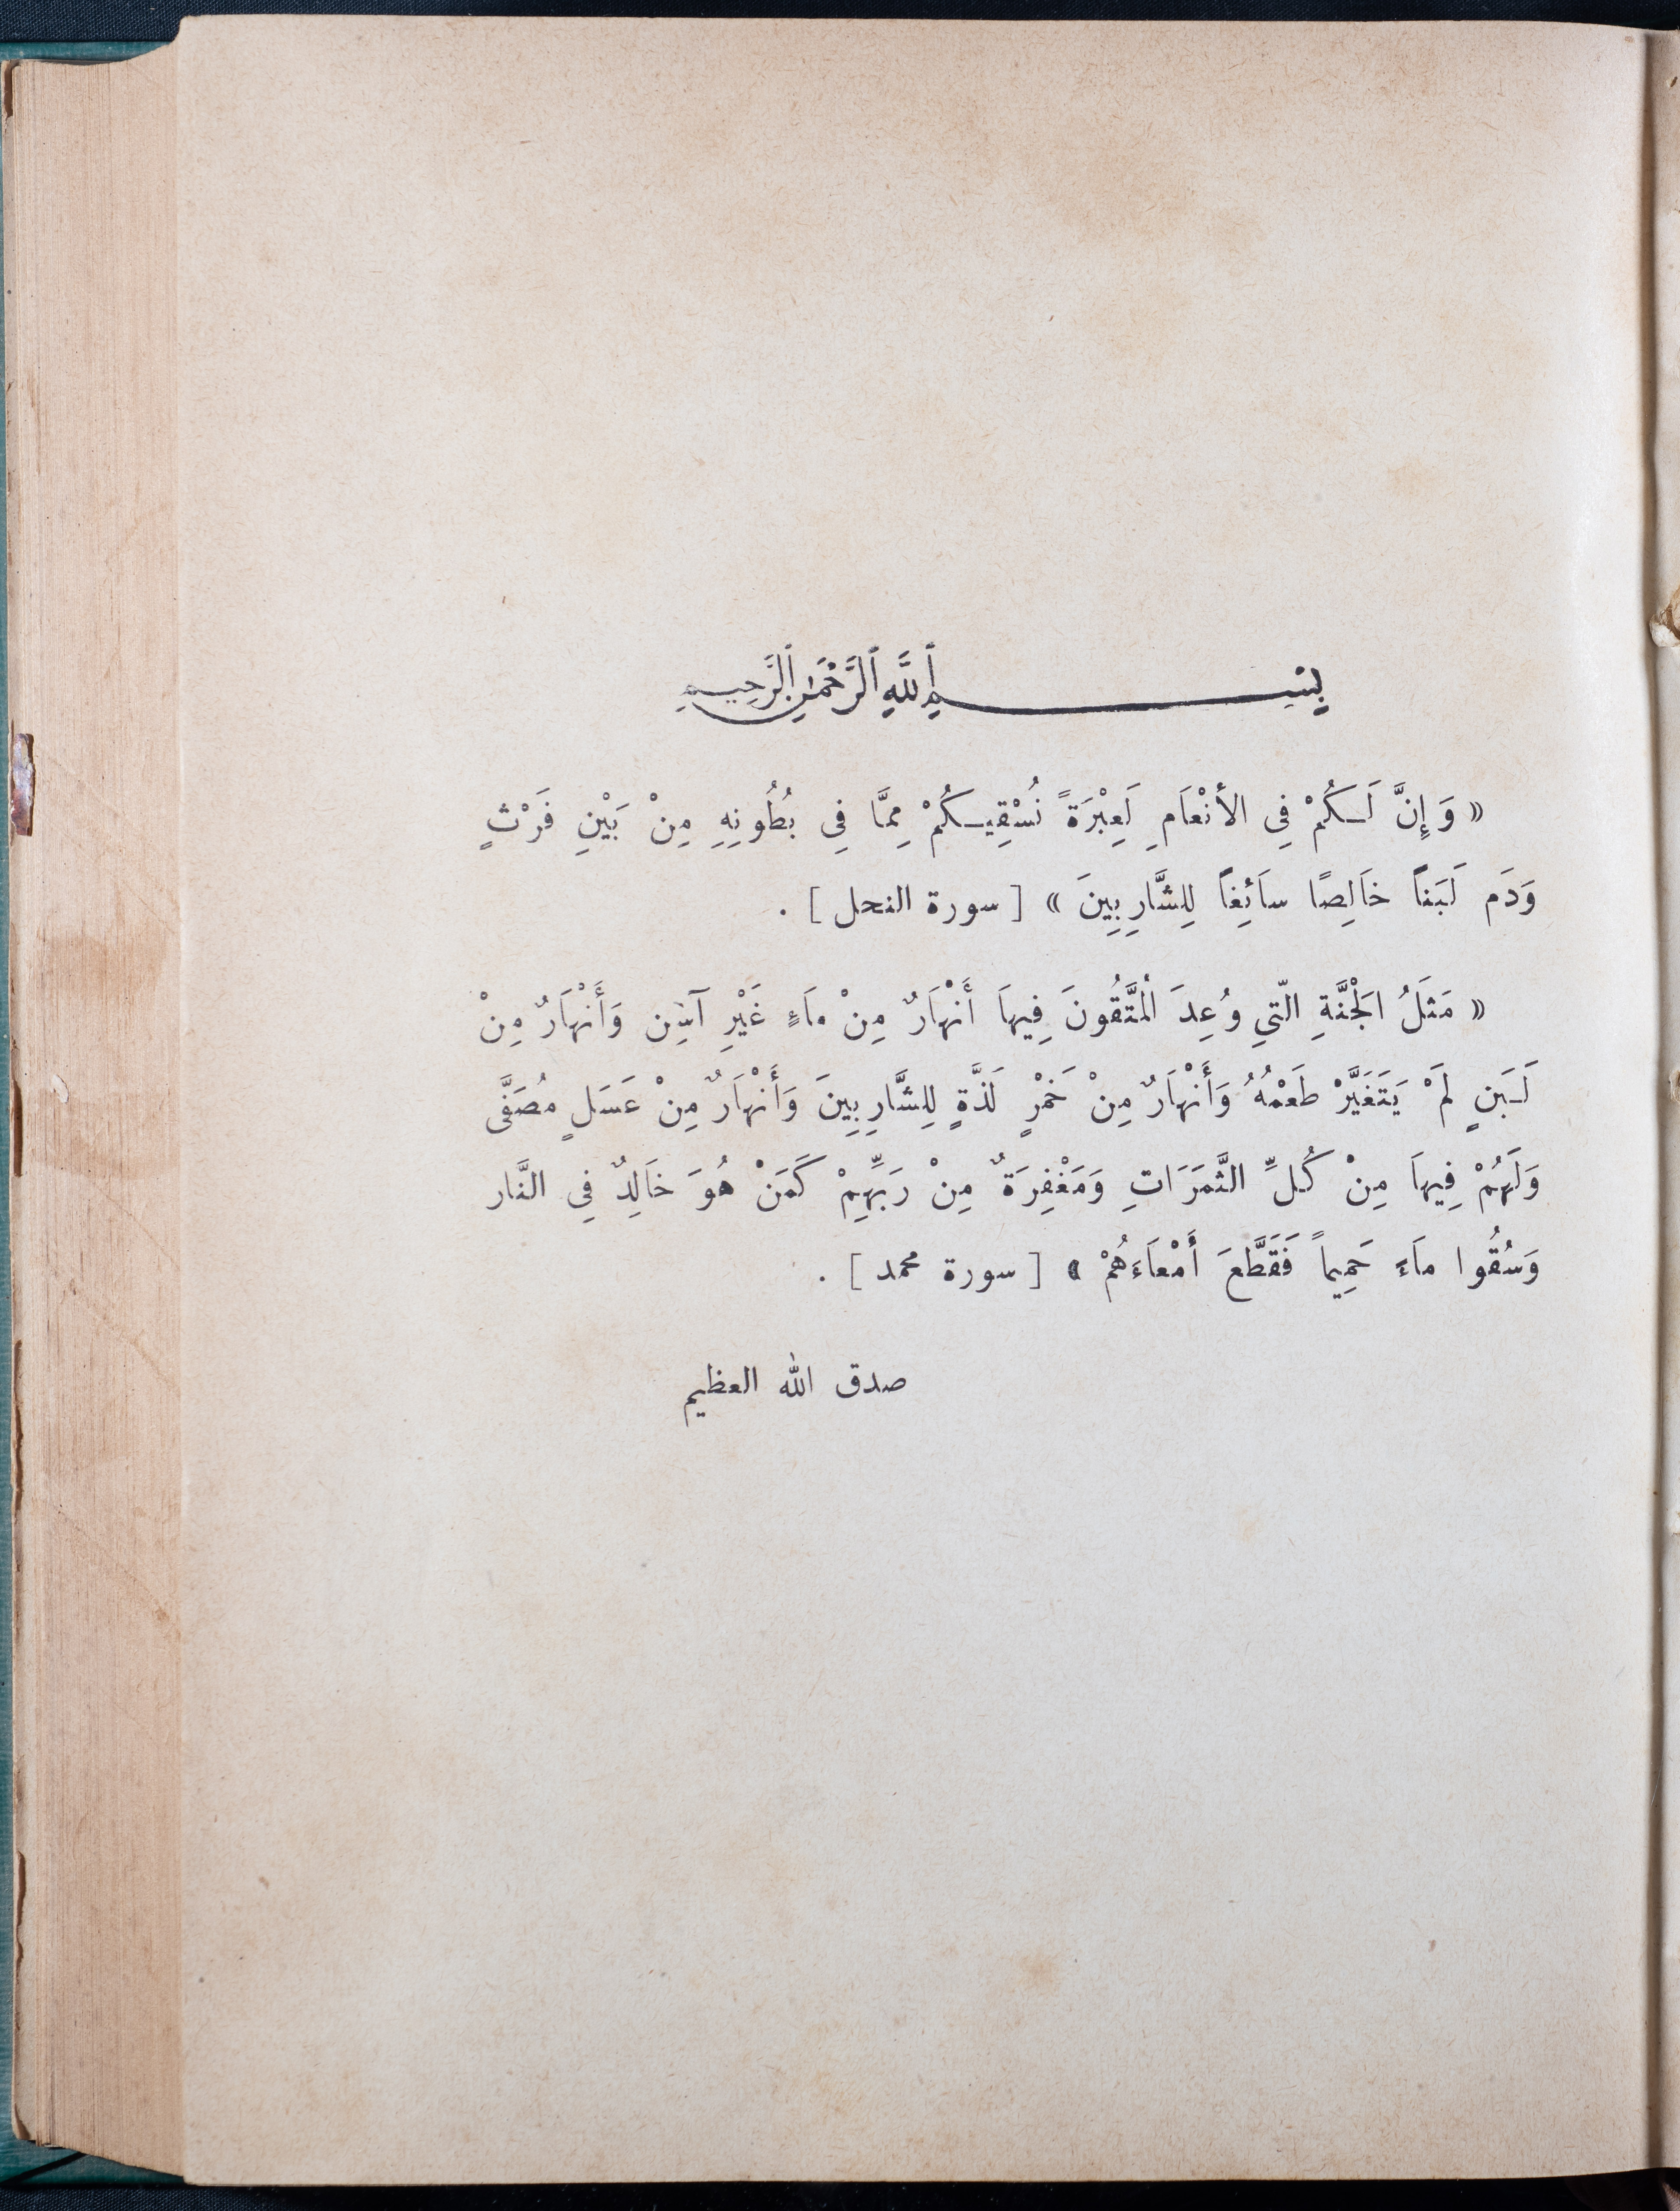 بِسْمِ ٱللَّهِ ٱلرَّحْمَٰنِ ٱلرَّحِيمِ
« وَإِنَّ لَـكُمْ فِى الأنْعَامِ لَعِبْرَةً نُسْقِيـكُمْ مِمَّا فِي بُطُونِهِ مِنْ بَيْنِ فَرْثٍ
وَدَم لَبَناً خَالِصًا سَائِغاً لِلِشَّارِبِينَ » [ سورة النحل ] .
« مَثَلُ الَجْنَّةِ الّتيِ وُعِدَ الُمْتَّقُونَ فِيهاَ أَنْهَارٌ مِنْ مَاءٍ غَيْرِ آسِنٍ وَأَنْهَارٌ مِنْ
لَـبَنٍ لَمْ يَتَغَيَّرْ طَعْمُهُ وَأَنْهَارٌ مِنْ خَمْرٍ لَذَّةٍ لِلِشَّارِبِينَ وَأَنْهَارٌ مِنْ عَسَلٍ مُصَفَّى
وَلَهُمْ فِيهاَ مِنْ كُلِّ الثَّمَرَاتِ وَمَغْفِرَةٌ مِنْ رَبِّهِمْ كَمَنْ هُوَ خَالِدٌ فِي النَّار
وَسُقُوا مَاءً حَمِيماً فَقَطَّعَ أَمْعَاءَهُمْ » [ سورة محمد ] .
صدق الله العظيم